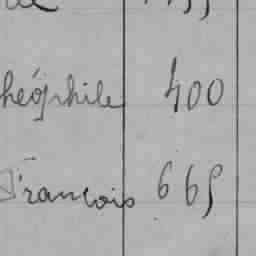 héophile 400
François 665